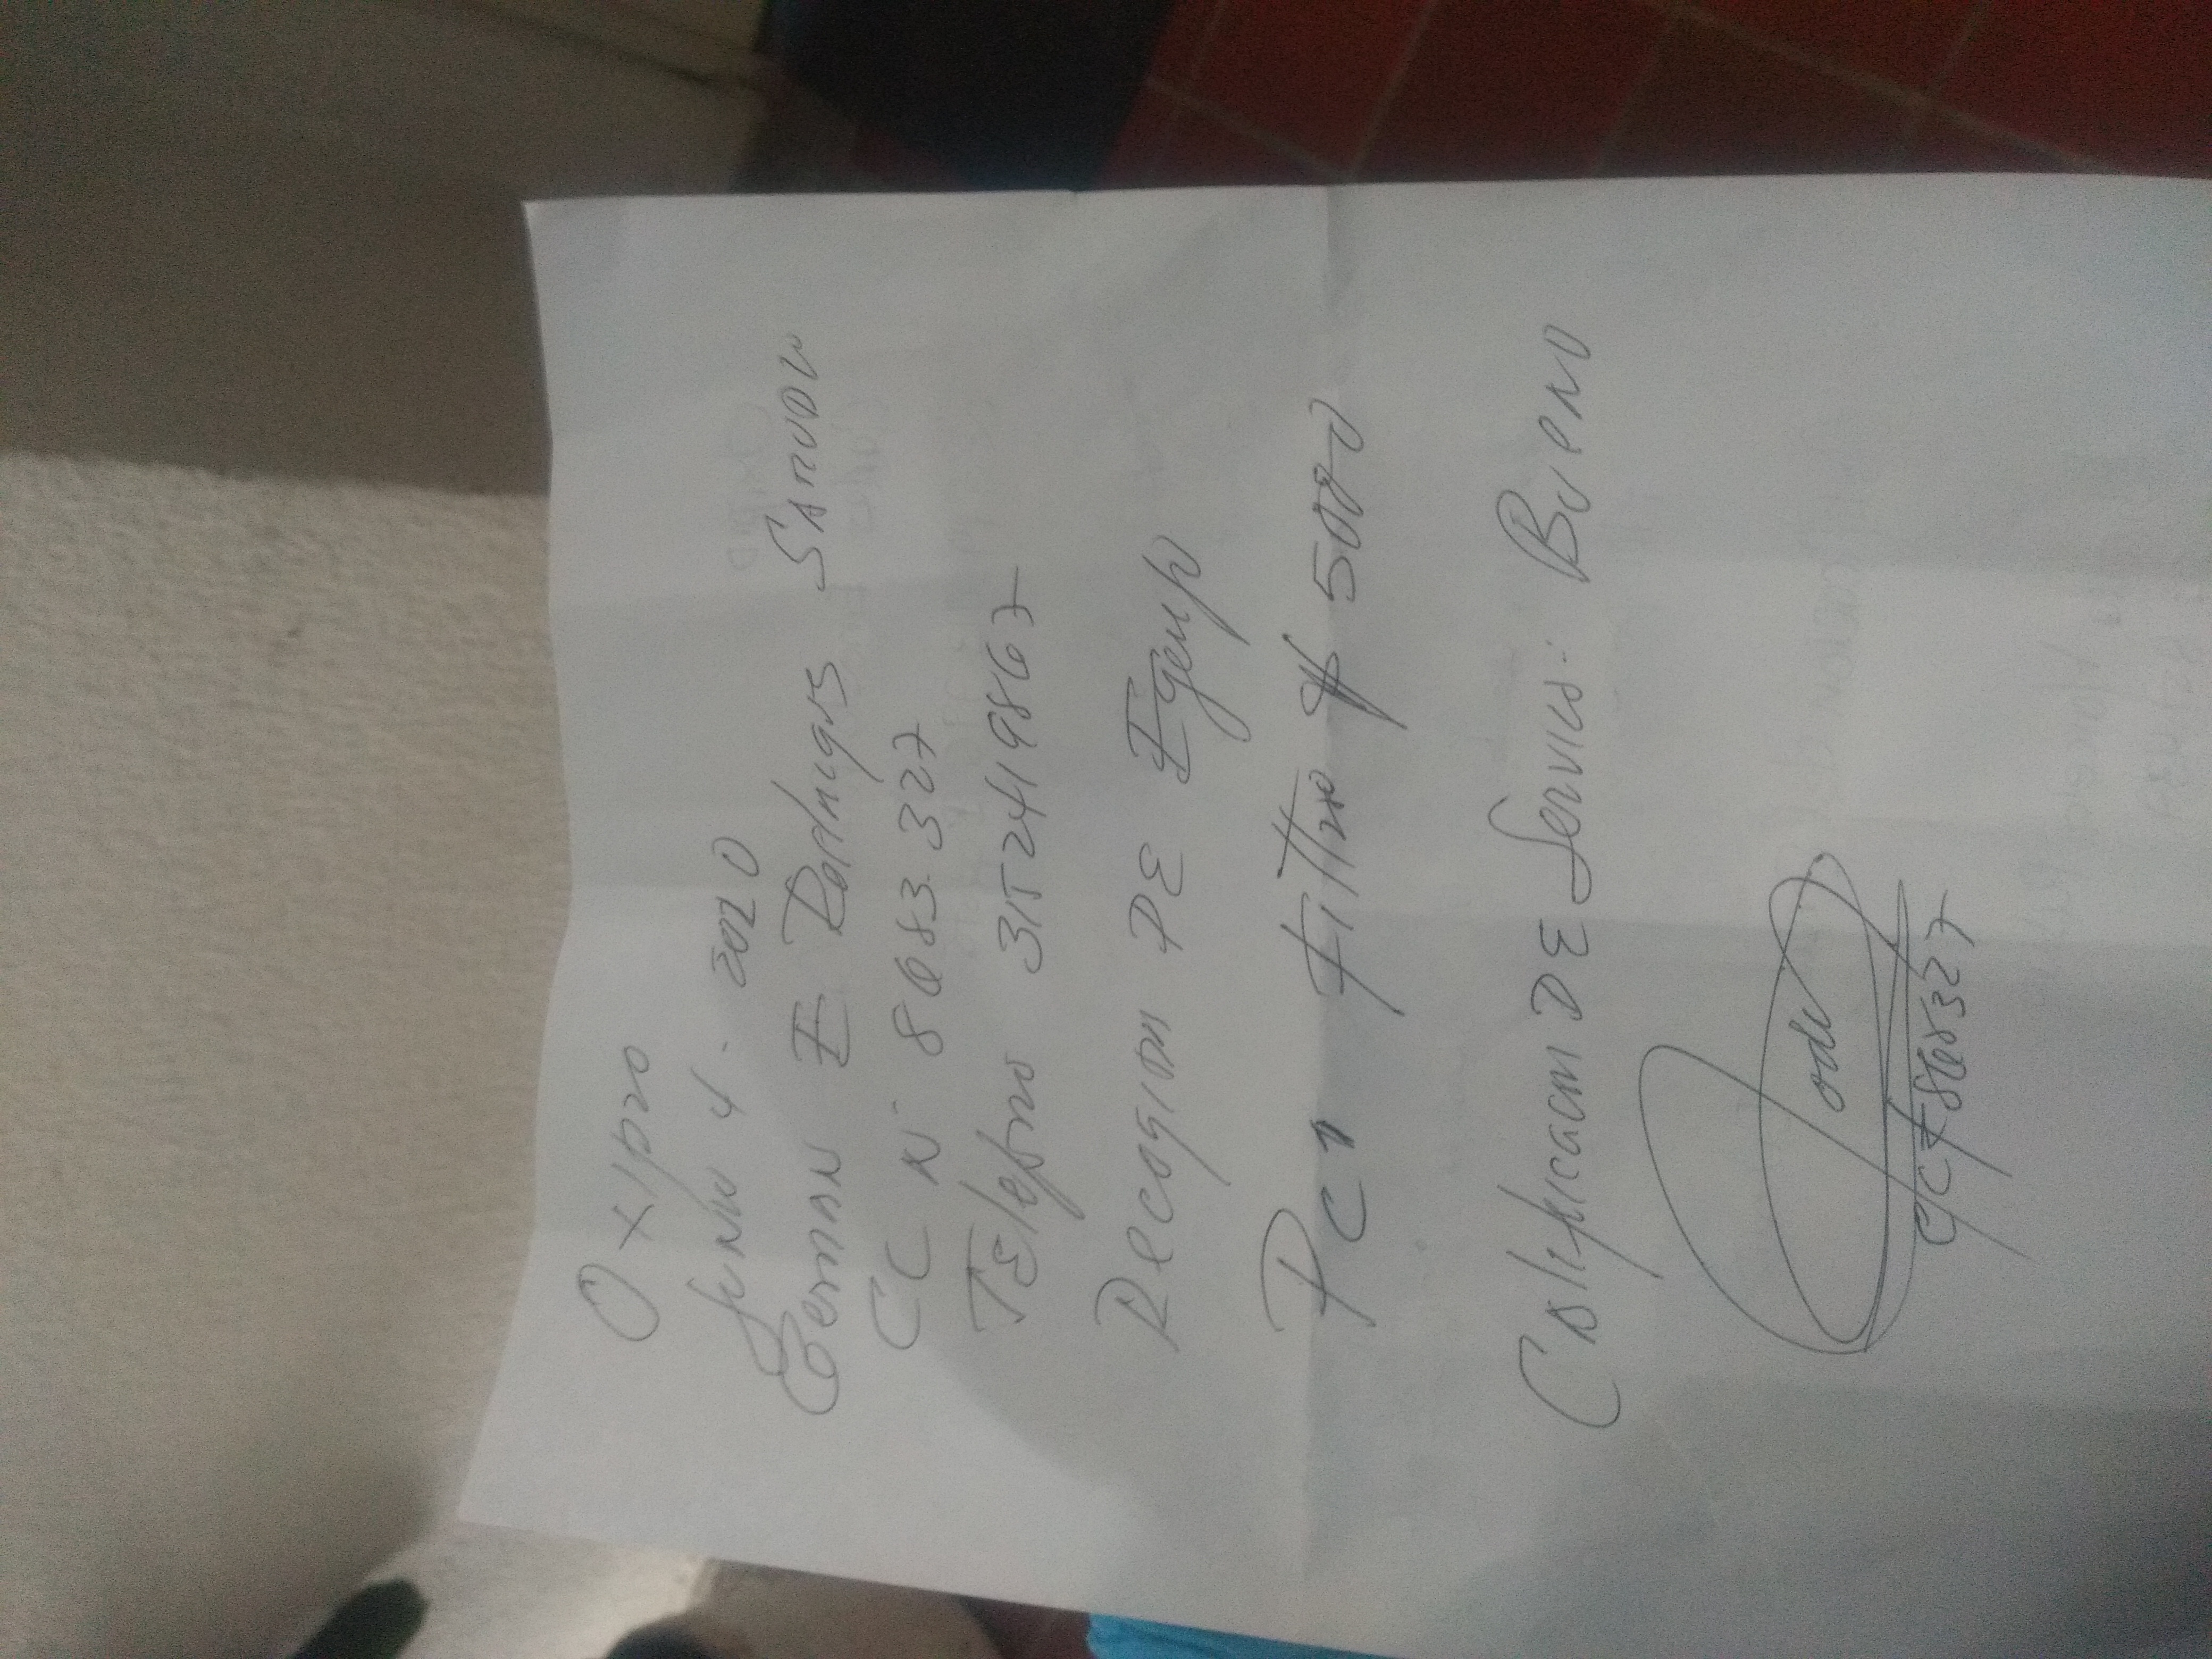 Oxipro
Junio 4. 2020
German E Rodrigues Sanudo
CC N. 8683.327
Telefono 3152419867
Recogion DE Equipo
PC 1 Filtro $ 5000
Calificacion DE Servicio: Bueno
CC 8683327